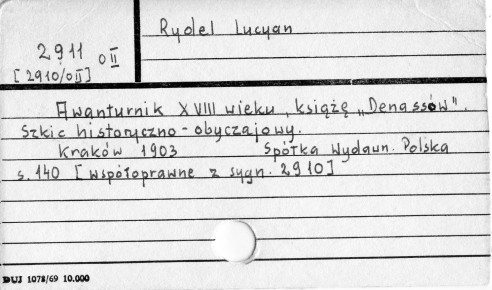 Rydel Lucyan
2911 o II
[2910/o II]
Awanturnik XVIII wieku, książę „Denassów".
Szkic historyczno-obyczajowy.
Kraków 1903 Spółka Wydawn. Polska
s. 140 [współoprawne z sygn. 2910]
DUJ 1078/69 10.000